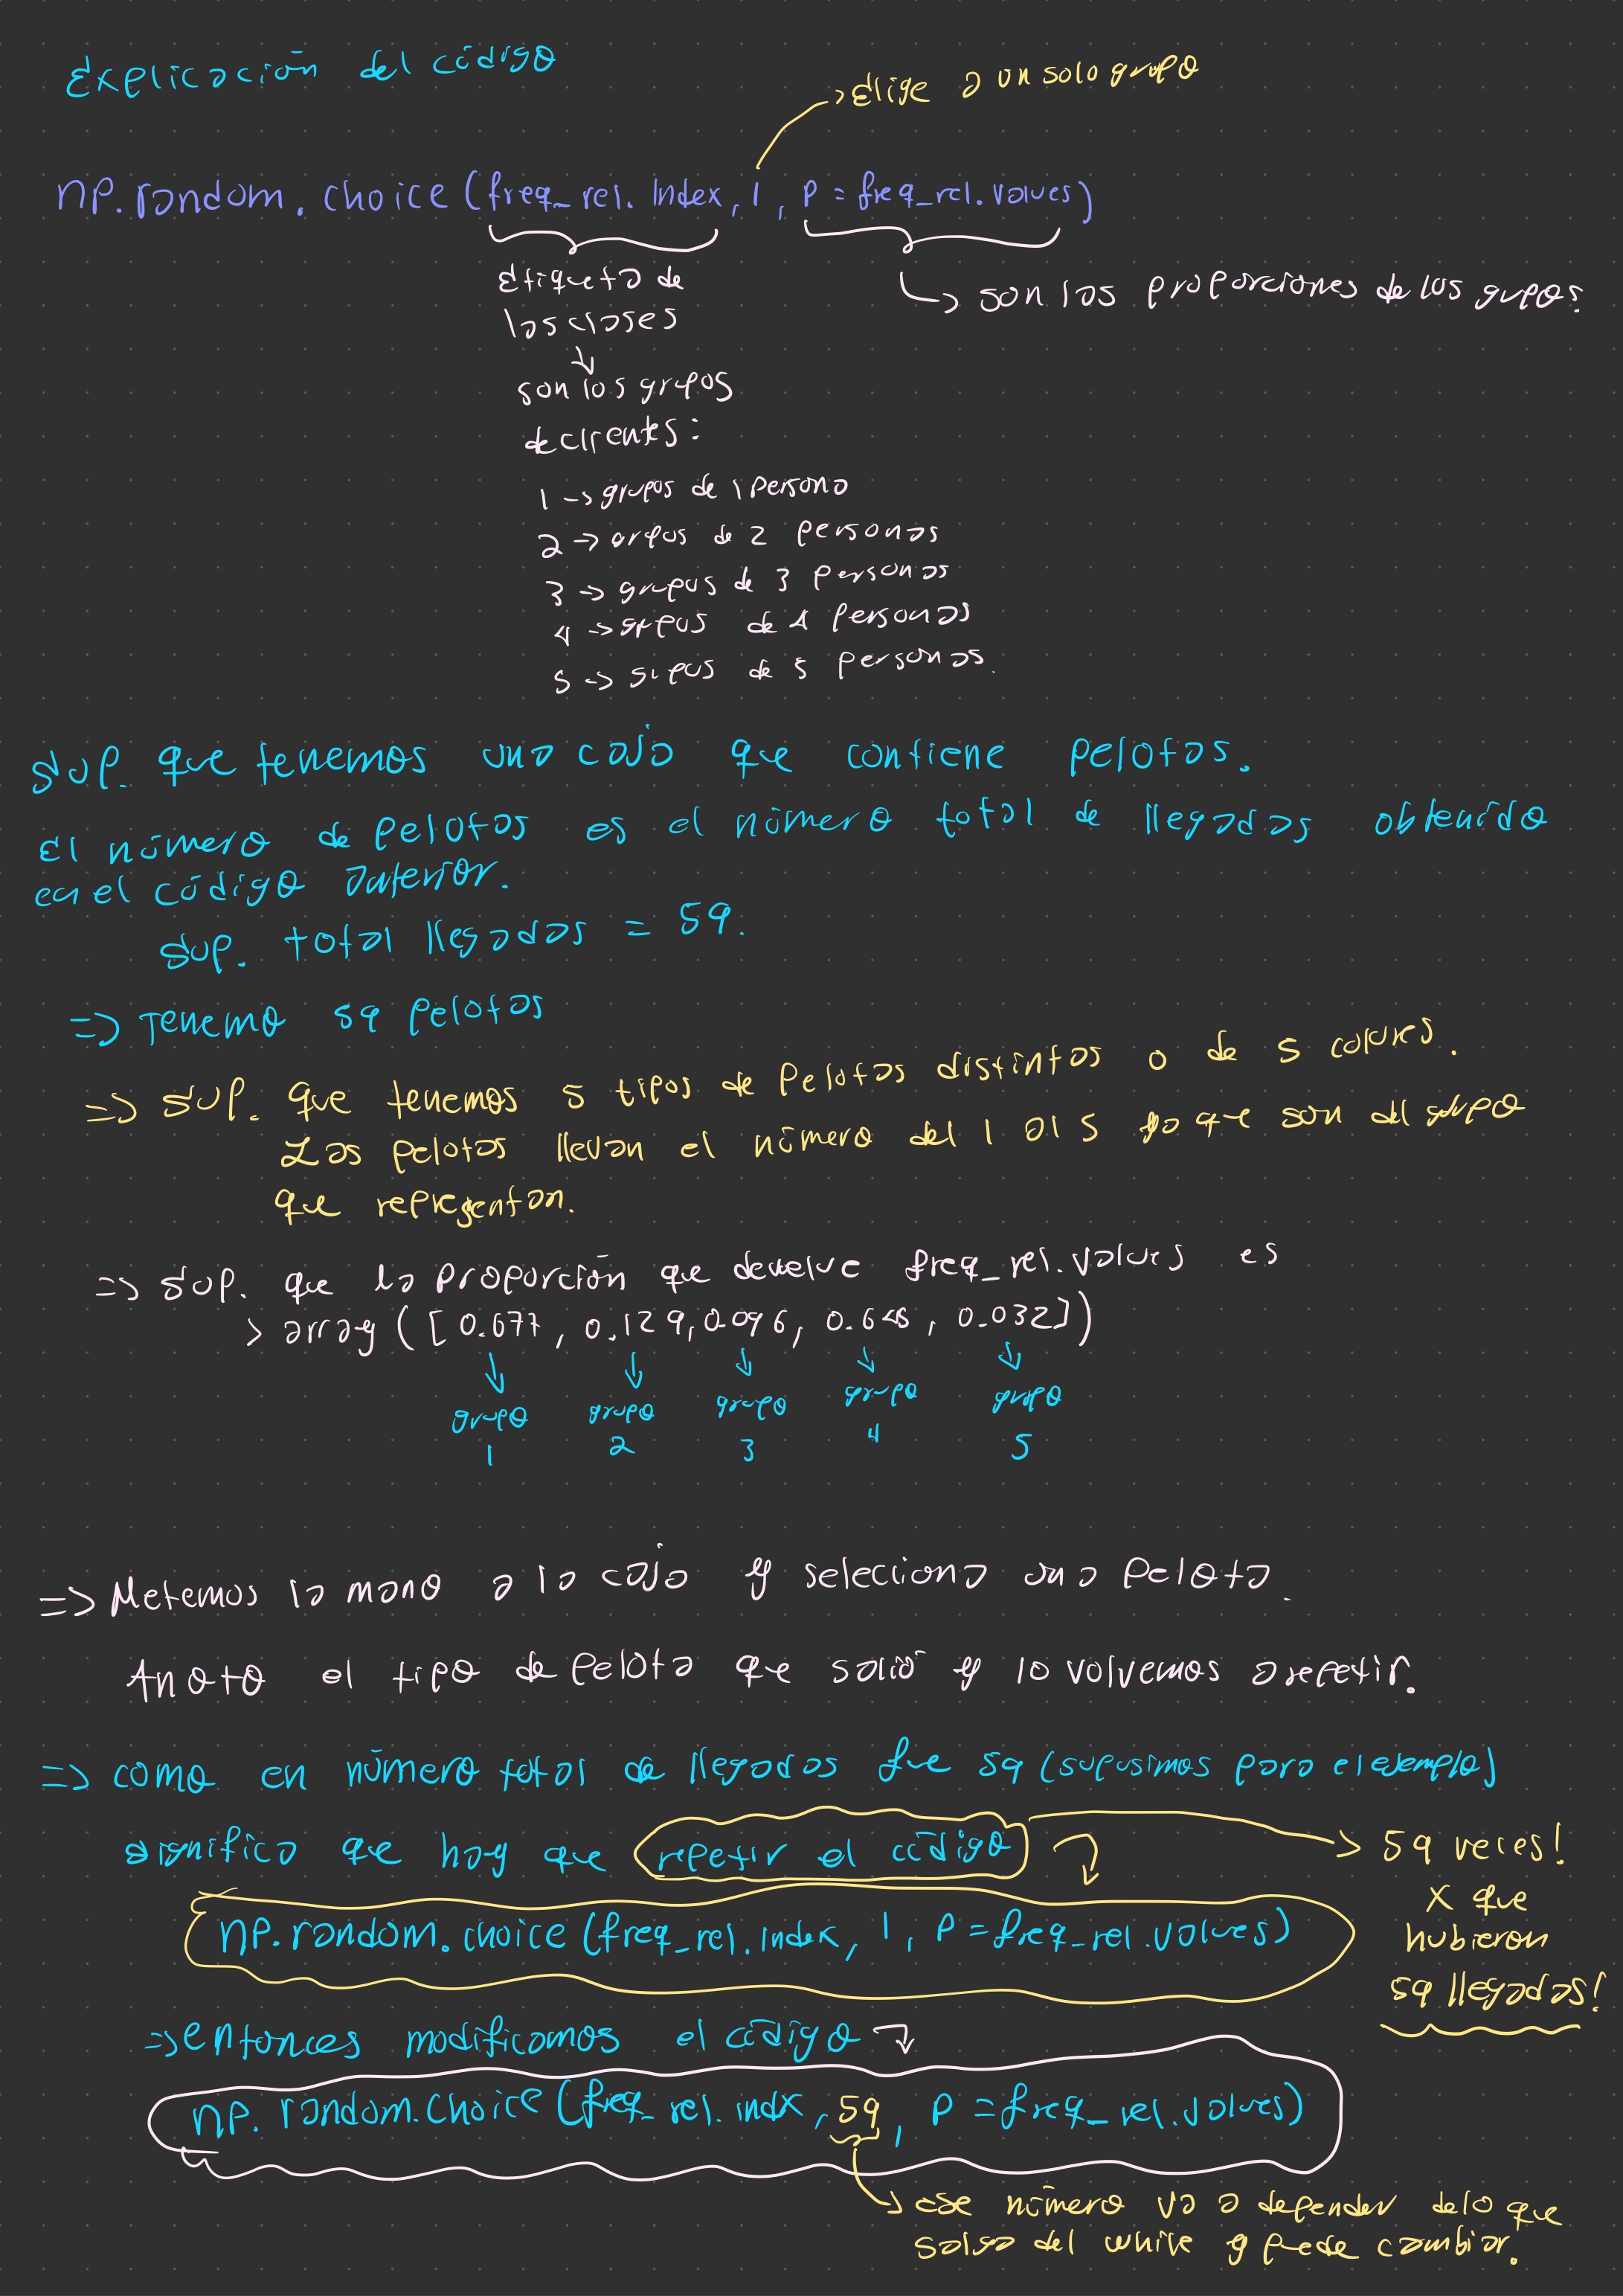 Explicación del código
→ Elige a un solo grupo
np.random.choice(freq_rel.index, 1, p = freq_rel.values)
Etiqueta de
las clases
↓
son los grupos
de clientes:
→ son las proporciones de los grupos.
1 → grupos de 1 persona
2 → grupos de 2 personas
3 → grupos de 3 personas
4 → grupos de 4 personas
5 → grupos de 5 personas.
Sup. que tenemos una caja que contiene pelotas.
El número de pelotas es el número total de llegadas obtenido
en el código anterior.
Sup. total llegadas = 59.
=> Tenemo 59 pelotas
=> Sup. que tenemos 5 tipos de pelotas distintas o de 5 colores.
Las pelotas llevan el número del 1 al 5 ya que son del grupo
que representan.
=> Sup. que la proporción que devuelve freq_rel.values es
> array([0.677, 0.129, 0.096, 0.645, 0.032])
↓ ↓ ↓ ↓ ↓
grupo grupo grupo grupo grupo
1 2 3 4 5
=> Metemos la mano a la caja y selecciona una pelota.
Anoto el tipo de pelota que salió y lo volvemos a repetir.
=> como en número total de llegadas fue 59 (supusimos para el ejemplo)
significa que hay que repetir el código → 59 veces!
x que
hubieron
59 llegadas!
np.random.choice(freq_rel.index, 1, p = freq_rel.values)
=> entonces modificamos el código
np.random.choice(freq_rel.indx, 59, p = freq_rel.values)
→ ese número va a depender de lo que
salga del while y puede cambiar.